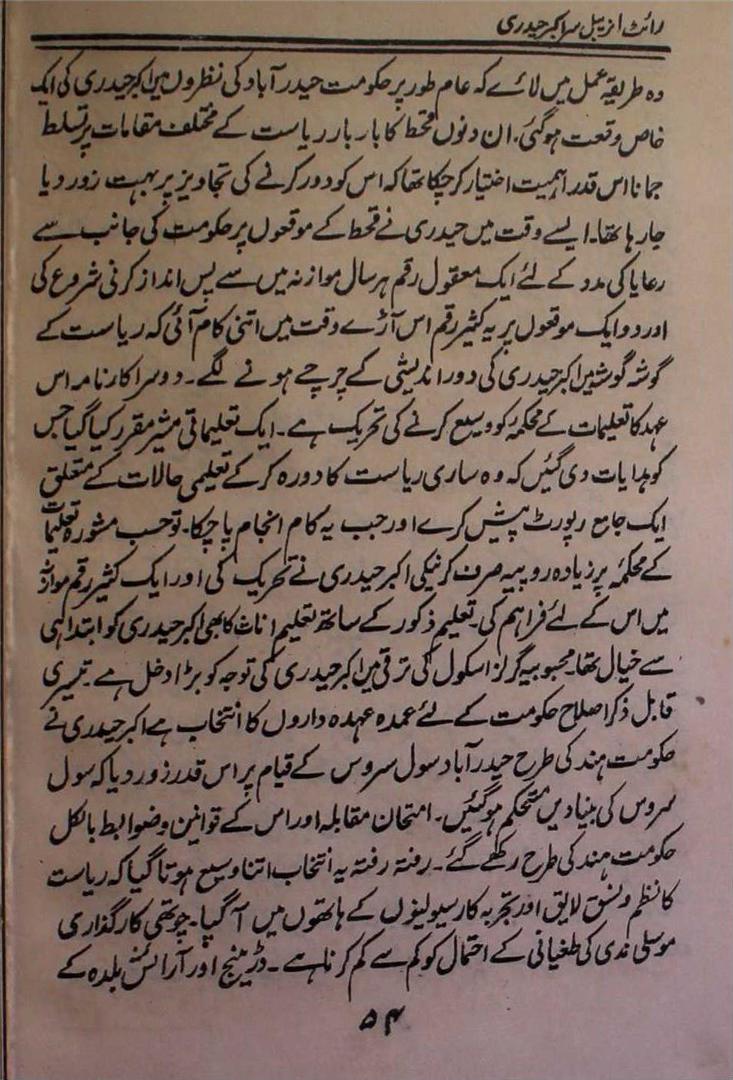 رائٹ آنریبل سر اکبر حیدری
وہ طریقۂ عمل میں لائے کہ عام طور پر حکومت حیدرآباد کی نظروں میں اکبر حیدری کی ایک
خاص وقعت ہوگئی۔ ان دنوں قحط کا بار بار ریاست کے مختلف مقامات پر تسلط
جمانا اس قدر اہمیت اختیار کر چکا تھا کہ اس کو دور کرنے کی تجاویز پر بہت زور دیا
جا رہا تھا۔ ایسے وقت میں حیدری نے قحط کے موقعوں پر حکومت کی جانب سے
رعایا کی مدد کے لئے ایک معقول رقم ہر سال موازنہ میں سے پس انداز کرنی شروع کی
اور دو ایک موقعوں پر یہ کثیر رقم اس آڑے وقت میں اتنی کام آئی کہ ریاست کے
گوشہ گوشہ میں اکبر حیدری کی دور اندیشی کے چرچے ہونے لگے۔ دوسرا کارنامہ اس
عہد کا تعلیمات کے محکمہ کو وسیع کرنے کی تحریک ہے۔ ایک تعلیماتی مشیر مقرر کیا گیا جس
کو ہدایات دی گئیں کہ وہ ساری ریاست کا دورہ کر کے تعلیمی حالات کے متعلق
ایک جامع رپورٹ پیش کرے اور جب یہ کام انجام پا چکا۔ تو حسب مشورہ تعلیمات
کے محکمہ پر زیادہ روپیہ صرف کرنیکی اکبر حیدری نے تحریک کی اور ایک کثیر رقم موازنہ
میں اس کے لئے فراہم کی۔ تعلیم ذکور کے ساتھ تعلیم اناث کا بھی اکبر حیدری کو ابتدا ہی
سے خیال تھا۔ محبوبیہ گرلز اسکول کی ترقی میں اکبر حیدری کی توجہ کو بڑا دخل ہے۔ تیسری
قابل ذکر اصلاح حکومت کے لئے عمدہ عہدہ داروں کا انتخاب ہے اکبر حیدری نے
حکومت ہند کی طرح حیدرآباد سول سروس کے قیام پر اس قدر زور دیا کہ سول
سروس کی بنیادیں مستحکم ہوگئیں۔ امتحان مقابلہ اور اس کے قوانین وضوابط بالکل
حکومت ہند کی طرح رکھے گئے۔ رفتہ رفتہ یہ انتخاب اتنا وسیع ہوتا گیا کہ ریاست
کا نظم ونسق لایق اور تجربہ کار سیولینوں کے ہاتھوں میں آ گیا۔ چوتھی کارگذاری
موسلی ندی کی طغیانی کے احتمال کو کم سے کم کرنا ہے۔ ڈرینج اور آرائش بلدہ کے
۵۴